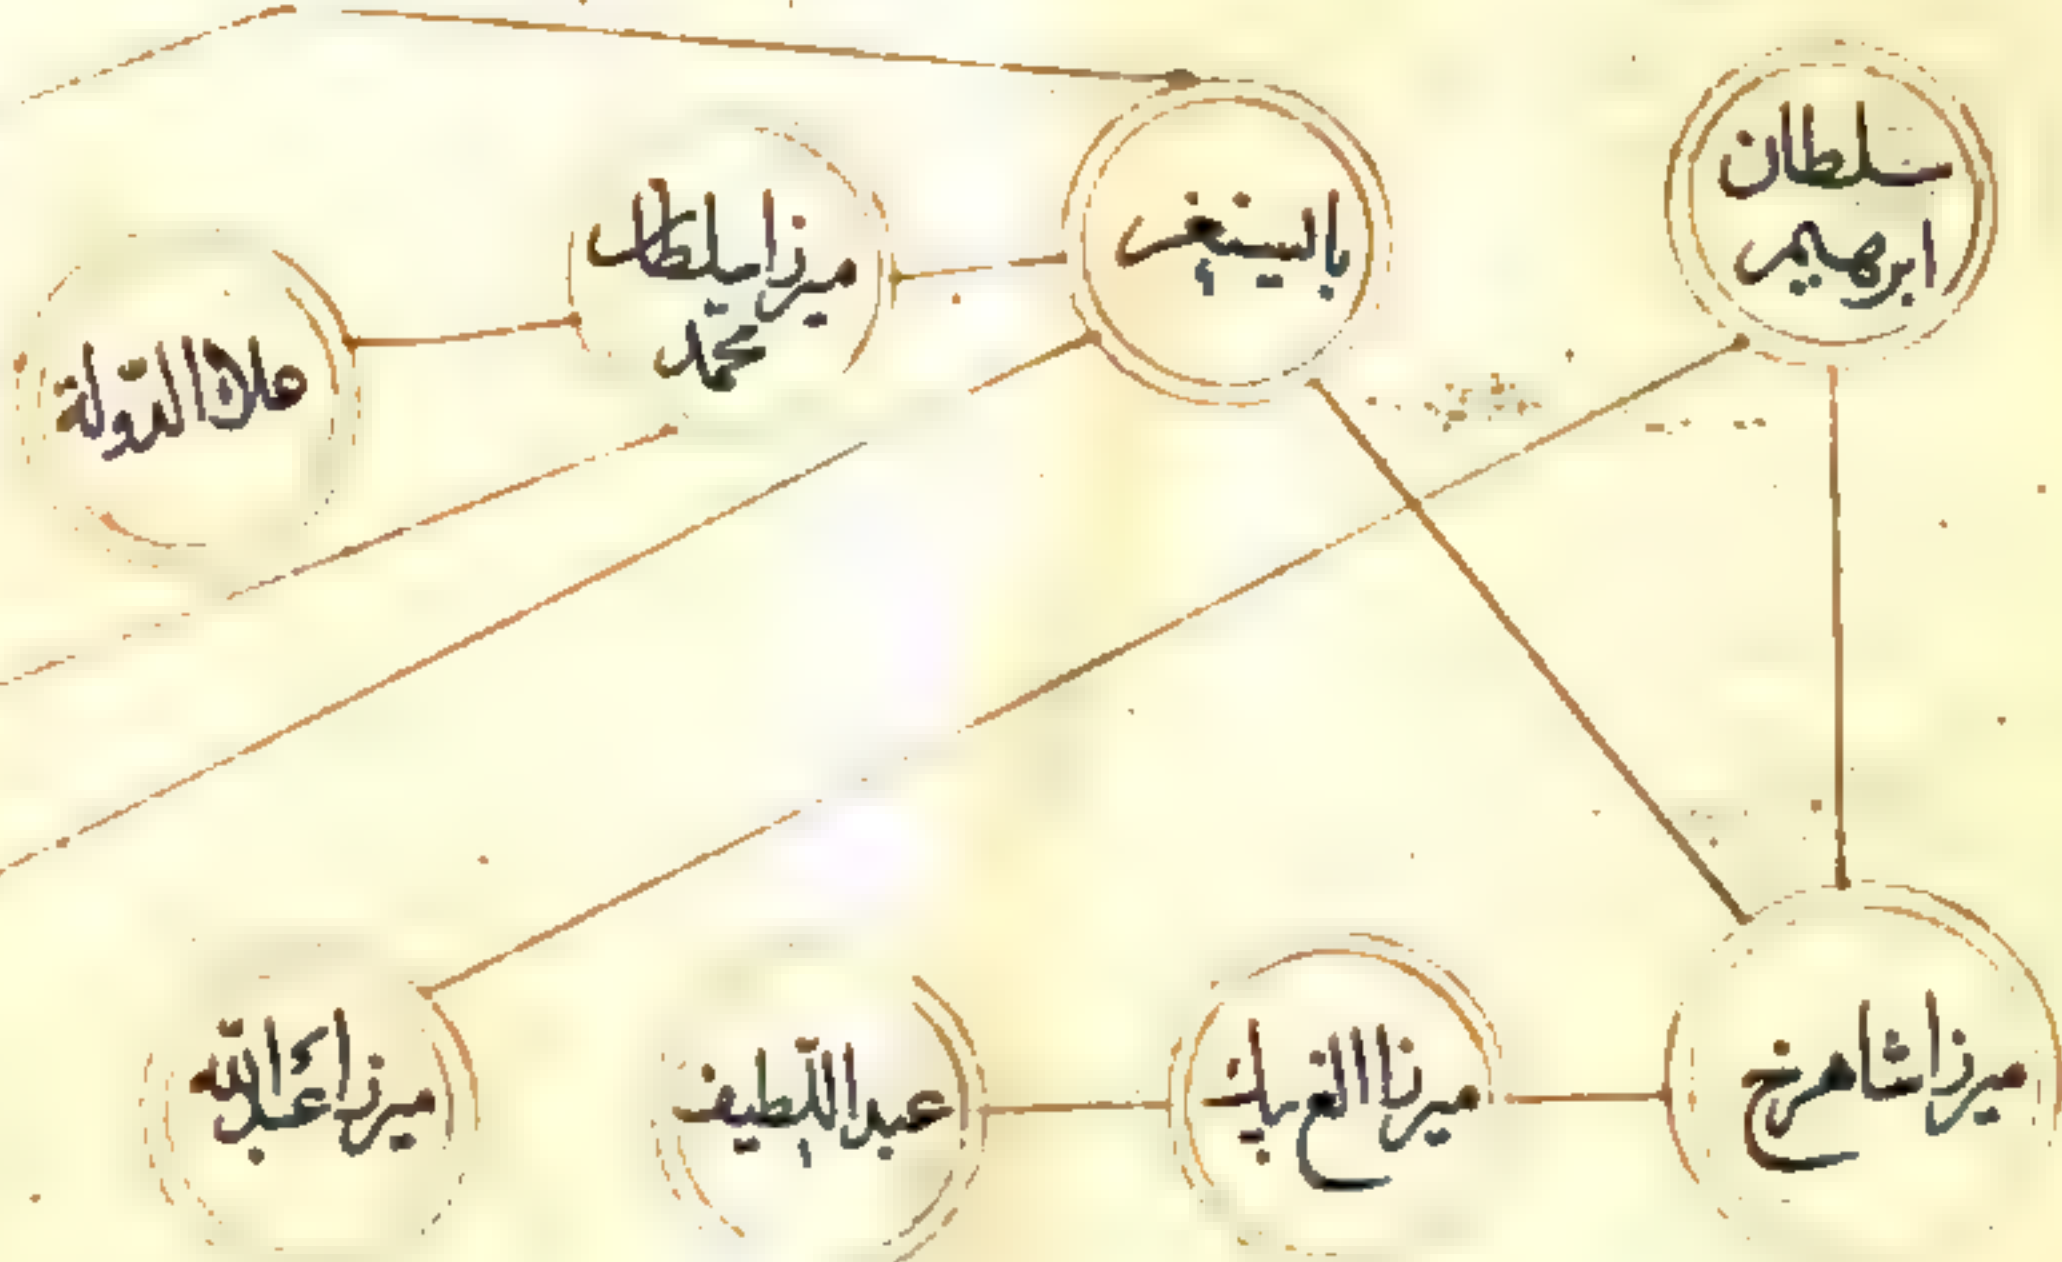 سلطان
ابرهيم
بايسنغر
ميرزا سلطان
محمد
علاء الدولة
ميرزا شاهرخ
ميرزا الغ بيك
عبد اللطيف
ميرزا عبد الله